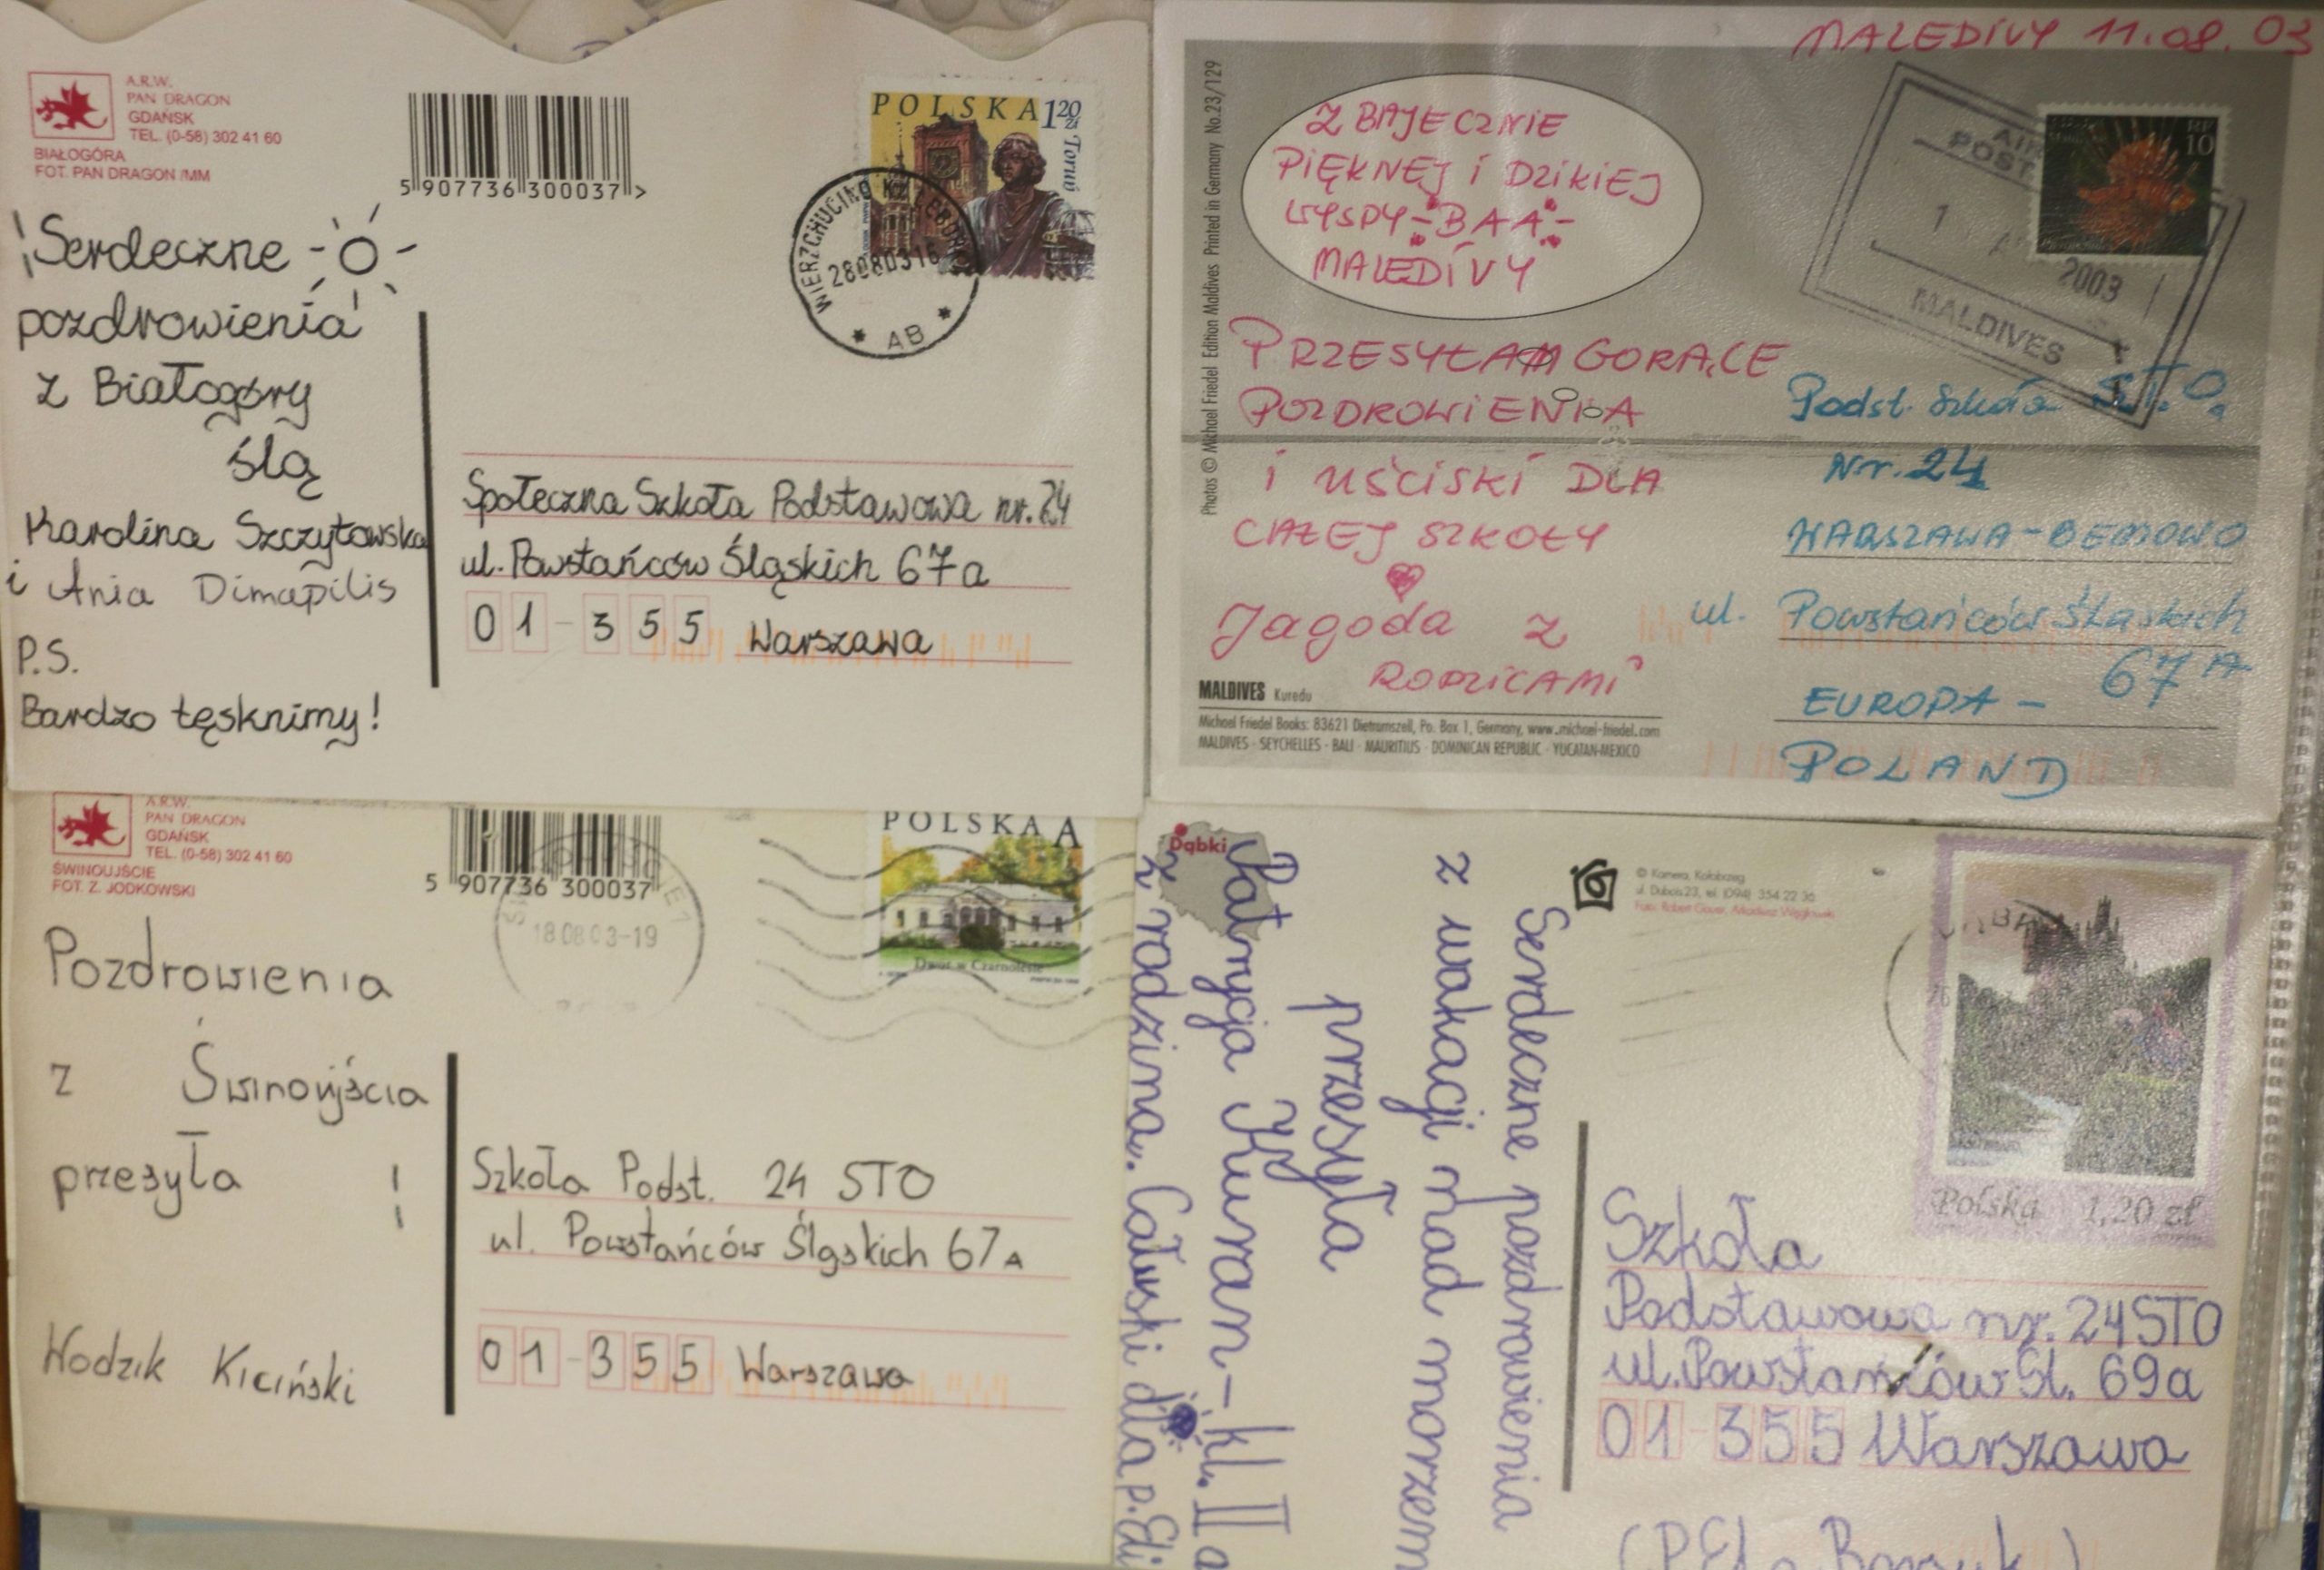 A.R.W.
PAN DRAGON
GDAŃSK
TEL. (0-58) 302 41 60
BIAŁOGÓRA
FOT. PAN DRAGON /MM
5 907736 300037 >
POLSKA 120 zł
Toruń
WIERZCHUCINO K/LĘBORKA
280803 16
* AB *
Serdeczne
pozdrowienia
z Białogóry
ślą
Karolina Szczytowska
i Ania Dimapilis
P.S.
Bardzo tęsknimy!
Społeczna Szkoła Podstawowa nr. 24
ul. Powstańców Śląskich 67a
01-355 Warszawa
MALEDIVY 11.08.03
Photos © Michael Friedel Edition Maldives Printed in Germany No.23/129
Z BAJECZNIE
PIĘKNEJ i DZIKIEJ
WYSPY-BAA-
MALEDIVY
10
POST
1
2003
MALDIVES
PRZESYŁAM GORĄCE
POZDROWIENIA
i UŚCISKI DLA
CAŁEJ SZKOŁY
Jagoda z
RODZICAMI
MALDIVES Kuredu
Michael Friedel Books: 83621 Dietramszell, Po. Box 1, Germany, www.michael-friedel.com
MALDIVES · SEYCHELLES · BALI · MAURITIUS · DOMINICAN REPUBLIC · YUCATAN-MEXICO
Podst. Szkoła S.T.O.
Nr. 24
WARSZAWA-BEMOWO
ul. Powstańców Śląskich
67A
EUROPA -
POLAND
A.R.W.
PAN DRAGON
GDAŃSK
TEL. (0-58) 302 41 60
ŚWINOUJŚCIE
FOT. Z. JODKOWSKI
5 907736 300037
18 08 03-19
POLSKA A
Dwór w Czarnolesie
Pozdrowienia
z Świnoujścia
przesyła
Wodzik Kiciński
Szkoła Podst. 24 STO
ul. Powstańców Śląskich 67A
01-355 Warszawa
Dąbki
© Kamera, Kołobrzeg
ul. Dubois 23, tel. (094) 354 22 36
Polska 1,20 zł
Serdeczne pozdrowienia
z wakacji nad morzem
przesyła
Patrycja Kuran- kl. II a
z rodziną. Całuski dla p. Eli
Szkoła
Podstawowa nr. 24 STO
ul. Powstańców Śl. 69a
01-355 Warszawa